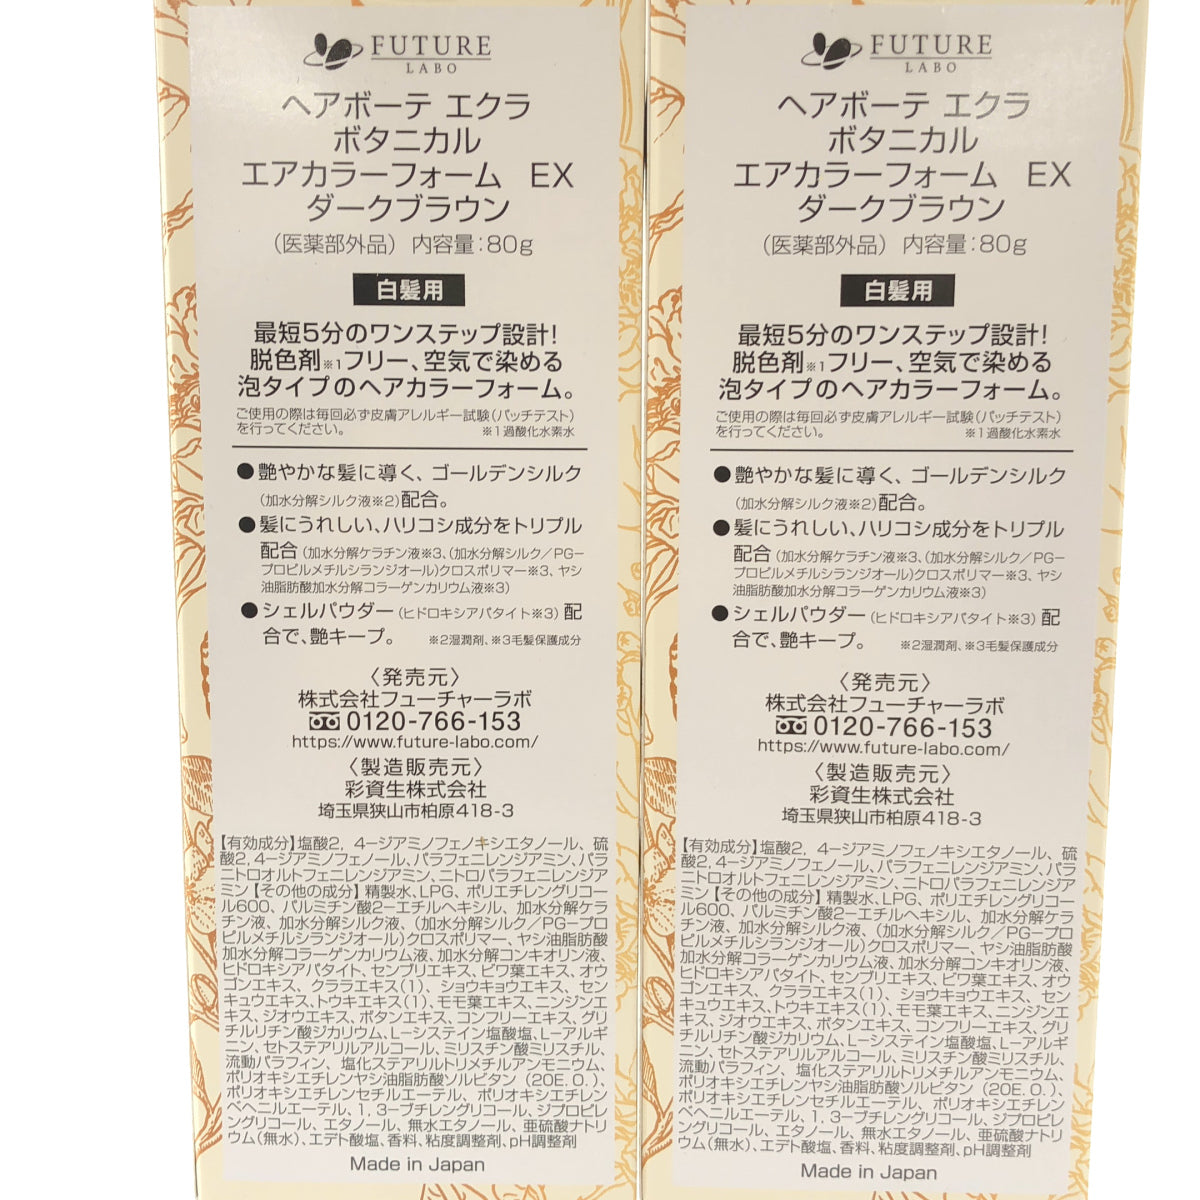 FUTURE
LABO
ヘアボーテ エクラ
ボタニカル
エアカラーフォーム EX
ダークブラウン
（医薬部外品） 内容量：80g
白髪用
最短5分のワンステップ設計！
脱色剤※1フリー、空気で染める
泡タイプのヘアカラーフォーム。
ご使用の際は毎回必ず皮膚アレルギー試験（パッチテスト）
を行ってください。 ※1過酸化水素水
●艶やかな髪に導く、ゴールデンシルク
（加水分解シルク液※2）配合。
●髪にうれしい、ハリコシ成分をトリプル
配合（加水分解ケラチン液※3、（加水分解シルク／PG－
プロピルメチルシランジオール）クロスポリマー※3、ヤシ
油脂肪酸加水分解コラーゲンカリウム液※3）
●シェルパウダー（ヒドロキシアパタイト※3）配
合で、艶キープ。 ※2湿潤剤、※3毛髪保護成分
〈発売元〉
株式会社フューチャーラボ
0120-766-153
https://www.future-labo.com/
〈製造販売元〉
彩資生株式会社
埼玉県狭山市柏原418-3
【有効成分】塩酸2，4－ジアミノフェノキシエタノール、硫
酸2，4－ジアミノフェノール、パラフェニレンジアミン、パラ
ニトロオルトフェニレンジアミン、ニトロパラフェニレンジア
ミン【その他の成分】精製水、LPG、ポリエチレングリコー
ル600、パルミチン酸2－エチルヘキシル、加水分解ケラ
チン液、加水分解シルク液、（加水分解シルク／PG－プロ
ピルメチルシランジオール）クロスポリマー、ヤシ油脂肪酸
加水分解コラーゲンカリウム液、加水分解コンキオリン液、
ヒドロキシアパタイト、センブリエキス、ビワ葉エキス、オウ
ゴンエキス、クララエキス（1）、ショウキョウエキス、セン
キュウエキス、トウキエキス（1）、モモ葉エキス、ニンジンエ
キス、ジオウエキス、ボタンエキス、コンフリーエキス、グリ
チルリチン酸ジカリウム、L－システイン塩酸塩、L－アルギ
ニン、セトステアリルアルコール、ミリスチン酸ミリスチル、
流動パラフィン、塩化ステアリルトリメチルアンモニウム、
ポリオキシエチレンヤシ油脂肪酸ソルビタン（20E.O.）、
ポリオキシエチレンセチルエーテル、ポリオキシエチレン
ベヘニルエーテル、1，3－ブチレングリコール、ジプロピレ
ングリコール、エタノール、無水エタノール、亜硫酸ナトリ
ウム（無水）、エデト酸塩、香料、粘度調整剤、pH調整剤
Made in Japan
FUTURE
LABO
ヘアボーテ エクラ
ボタニカル
エアカラーフォーム EX
ダークブラウン
（医薬部外品） 内容量：80g
白髪用
最短5分のワンステップ設計！
脱色剤※1フリー、空気で染める
泡タイプのヘアカラーフォーム。
ご使用の際は毎回必ず皮膚アレルギー試験（パッチテスト）
を行ってください。 ※1過酸化水素水
●艶やかな髪に導く、ゴールデンシルク
（加水分解シルク液※2）配合。
●髪にうれしい、ハリコシ成分をトリプル
配合（加水分解ケラチン液※3、（加水分解シルク／PG－
プロピルメチルシランジオール）クロスポリマー※3、ヤシ
油脂肪酸加水分解コラーゲンカリウム液※3）
●シェルパウダー（ヒドロキシアパタイト※3）配
合で、艶キープ。 ※2湿潤剤、※3毛髪保護成分
〈発売元〉
株式会社フューチャーラボ
0120-766-153
https://www.future-labo.com/
〈製造販売元〉
彩資生株式会社
埼玉県狭山市柏原418-3
【有効成分】塩酸2，4－ジアミノフェノキシエタノール、硫
酸2，4－ジアミノフェノール、パラフェニレンジアミン、パラ
ニトロオルトフェニレンジアミン、ニトロパラフェニレンジア
ミン【その他の成分】精製水、LPG、ポリエチレングリコー
ル600、パルミチン酸2－エチルヘキシル、加水分解ケラ
チン液、加水分解シルク液、（加水分解シルク／PG－プロ
ピルメチルシランジオール）クロスポリマー、ヤシ油脂肪酸
加水分解コラーゲンカリウム液、加水分解コンキオリン液、
ヒドロキシアパタイト、センブリエキス、ビワ葉エキス、オウ
ゴンエキス、クララエキス（1）、ショウキョウエキス、セン
キュウエキス、トウキエキス（1）、モモ葉エキス、ニンジンエ
キス、ジオウエキス、ボタンエキス、コンフリーエキス、グリ
チルリチン酸ジカリウム、L－システイン塩酸塩、L－アルギ
ニン、セトステアリルアルコール、ミリスチン酸ミリスチル、
流動パラフィン、塩化ステアリルトリメチルアンモニウム、
ポリオキシエチレンヤシ油脂肪酸ソルビタン（20E.O.）、
ポリオキシエチレンセチルエーテル、ポリオキシエチレン
ベヘニルエーテル、1，3－ブチレングリコール、ジプロピレ
ングリコール、エタノール、無水エタノール、亜硫酸ナトリ
ウム（無水）、エデト酸塩、香料、粘度調整剤、pH調整剤
Made in Japan